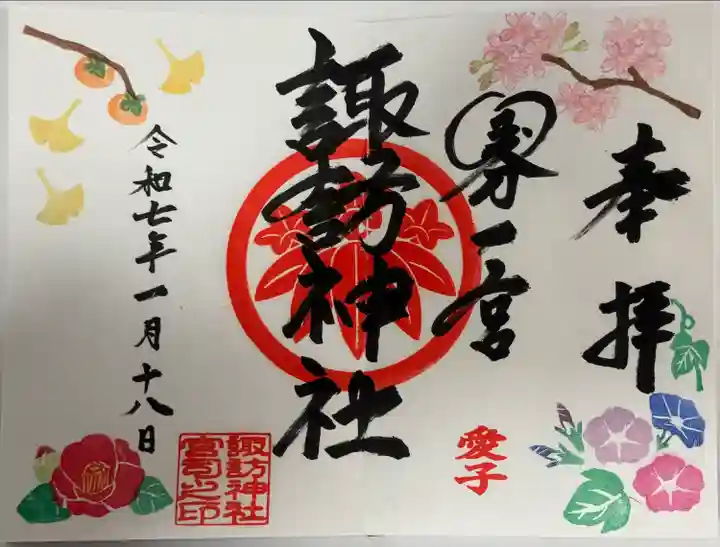 奉拝
國分一宮
愛子
諏訪神社
諏訪神社
宮司之印
令和七年一月十八日